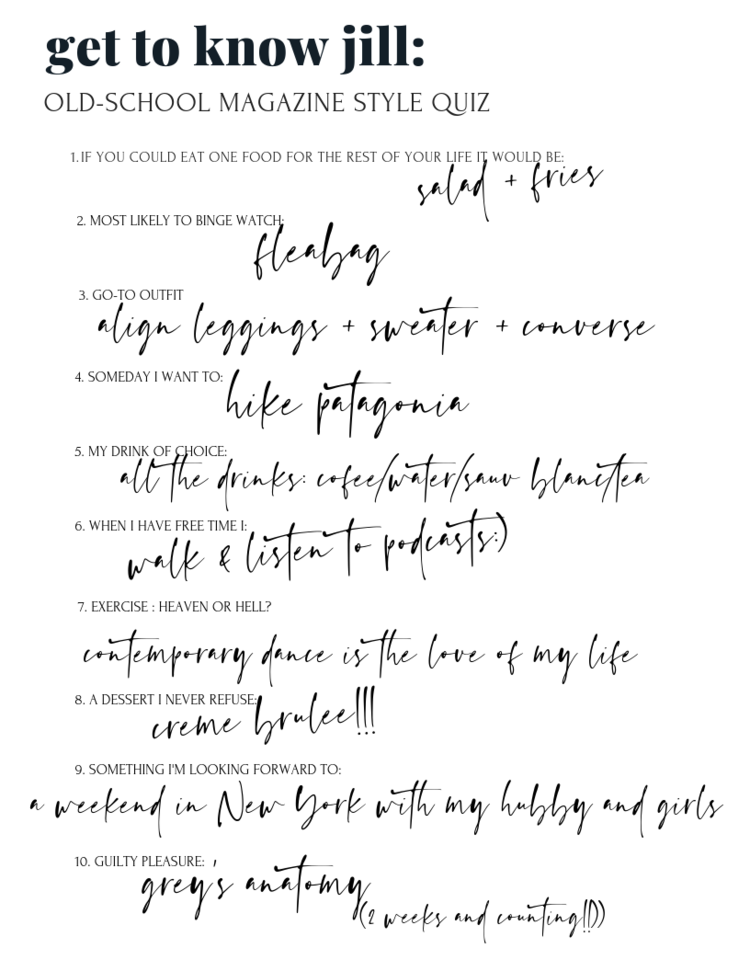 get to know jill:
OLD-SCHOOL MAGAZINE STYLE QUIZ
1. IF YOU COULD EAT ONE FOOD FOR THE REST OF YOUR LIFE IT WOULD BE:
salad + fries
2. MOST LIKELY TO BINGE WATCH:
fleabag
3. GO-TO OUTFIT
align leggings + sweater + converse
4. SOMEDAY I WANT TO:
hike patagonia
5. MY DRINK OF CHOICE:
all the drinks: cofee/water/sauv blanc/tea
6. WHEN I HAVE FREE TIME I:
walk & listen to podcasts:)
7. EXERCISE : HEAVEN OR HELL?
contemporary dance is the love of my life
8. A DESSERT I NEVER REFUSE:
creme brulee!!!
9. SOMETHING I'M LOOKING FORWARD TO:
a weekend in New York with my hubby and girls
10. GUILTY PLEASURE:
grey's anatomy
(2 weeks and counting!!))